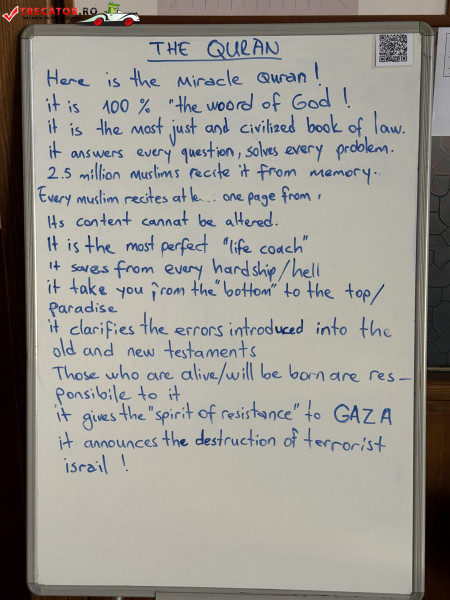 TRECATOR.RO
THE QURAN
Here is the Miracle Quran!
it is 100% "the woord of God!
it is the most just and civilized book of law.
it answers every question, solves every problem.
2.5 million muslims recite it from memory.
Every muslim recites at le... one page from
Its content cannat be altered.
It is the most perfect "life coach"
it saves from every hardship/hell
it take you from the "bottom" to the top/
paradise
it clarifies the errors introduced into the
old and new testaments
Those who are alive/will be born are res-
ponsibile to it
it gives the "spirit of resistance" to GAZA
it announces the destruction of terrorist
israil !